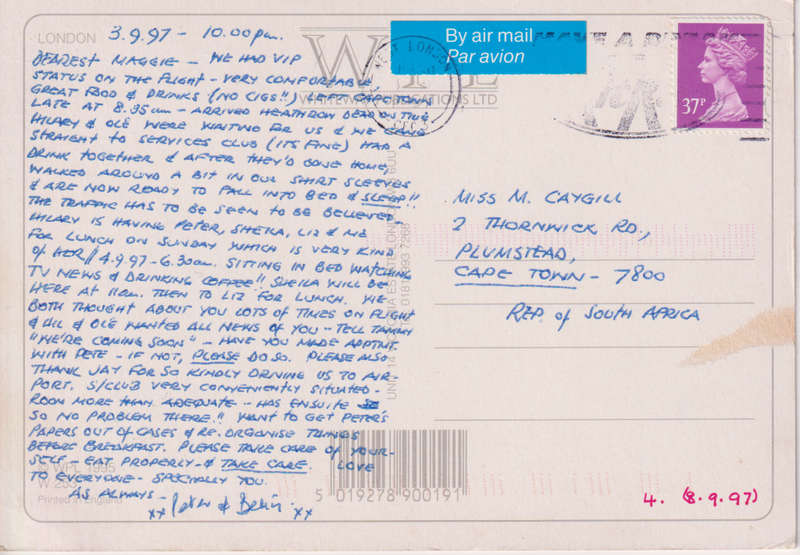 LONDON
3.9.97 - 10.00pm.
DEAREST MAGGIE - WE HAD VIP
STATUS ON THE FLIGHT - VERY COMFORTABLE
GREAT FOOD & DRINKS (NO CIGS!!) LEFT CAPETOWN
LATE AT 8.35am - ARRIVED HEATHROW DEAD ON TIME
HILARY & OLÉ WERE WAITING FOR US & WE CAME
STRAIGHT TO SERVICES CLUB (ITS FINE) HAD A
DRINK TOGETHER & AFTER THEY'D GONE HOME,
WALKED AROUND A BIT IN OUR SHIRT SLEEVES
& ARE NOW READY TO FALL INTO BED & SLEEP!!
THE TRAFFIC HAS TO BE SEEN TO BE BELIEVED -
HILARY IS HAVING PETER, SHEILA, LIZ & ME
FOR LUNCH ON SUNDAY WHICH IS VERY KIND
OF HER // 4.9.97 - 6.30am. SITTING IN BED WATCHING
TV NEWS & DRINKING COFFEE!! SHEILA WILL BE
HERE AT 11am. THEN TO LIZ FOR LUNCH. WE
BOTH THOUGHT ABOUT YOU LOTS OF TIMES ON FLIGHT
& HIL & OLÉ WANTED ALL NEWS OF YOU - TELL TAMMY
"WE'RE COMING SOON" - HAVE YOU MADE APPTMT.
WITH PETE - IF NOT, PLEASE DO SO. PLEASE ALSO
THANK JAY FOR SO KINDLY DRIVING US TO AIR-
PORT. S/CLUB VERY CONVENIENTLY SITUATED -
ROOM MORE THAN ADEQUATE - HAS ENSUITE
SO NO PROBLEM THERE!! WANT TO GET PETER'S
PAPERS OUT OF CASES & RE. ORGONISE THINGS
BEFORE BREAKFAST. PLEASE TAKE CARE OF YOUR-
SELF - EAT PROPERLY - & TAKE CARE. LOVE
TO EVERYONE - SPECIALLY YOU.
AS ALWAYS -
xx Peter & xx
© WPL 1995
W.235
Printed in England
WPL
5 019278 900191
By air mail
Par avion
37P
MISS M. CAYGILL
2 THORNWICK RD.,
PLUMSTEAD,
CAPE TOWN - 7800
REP. OF SOUTH AFRICA
4. (8.9.97)